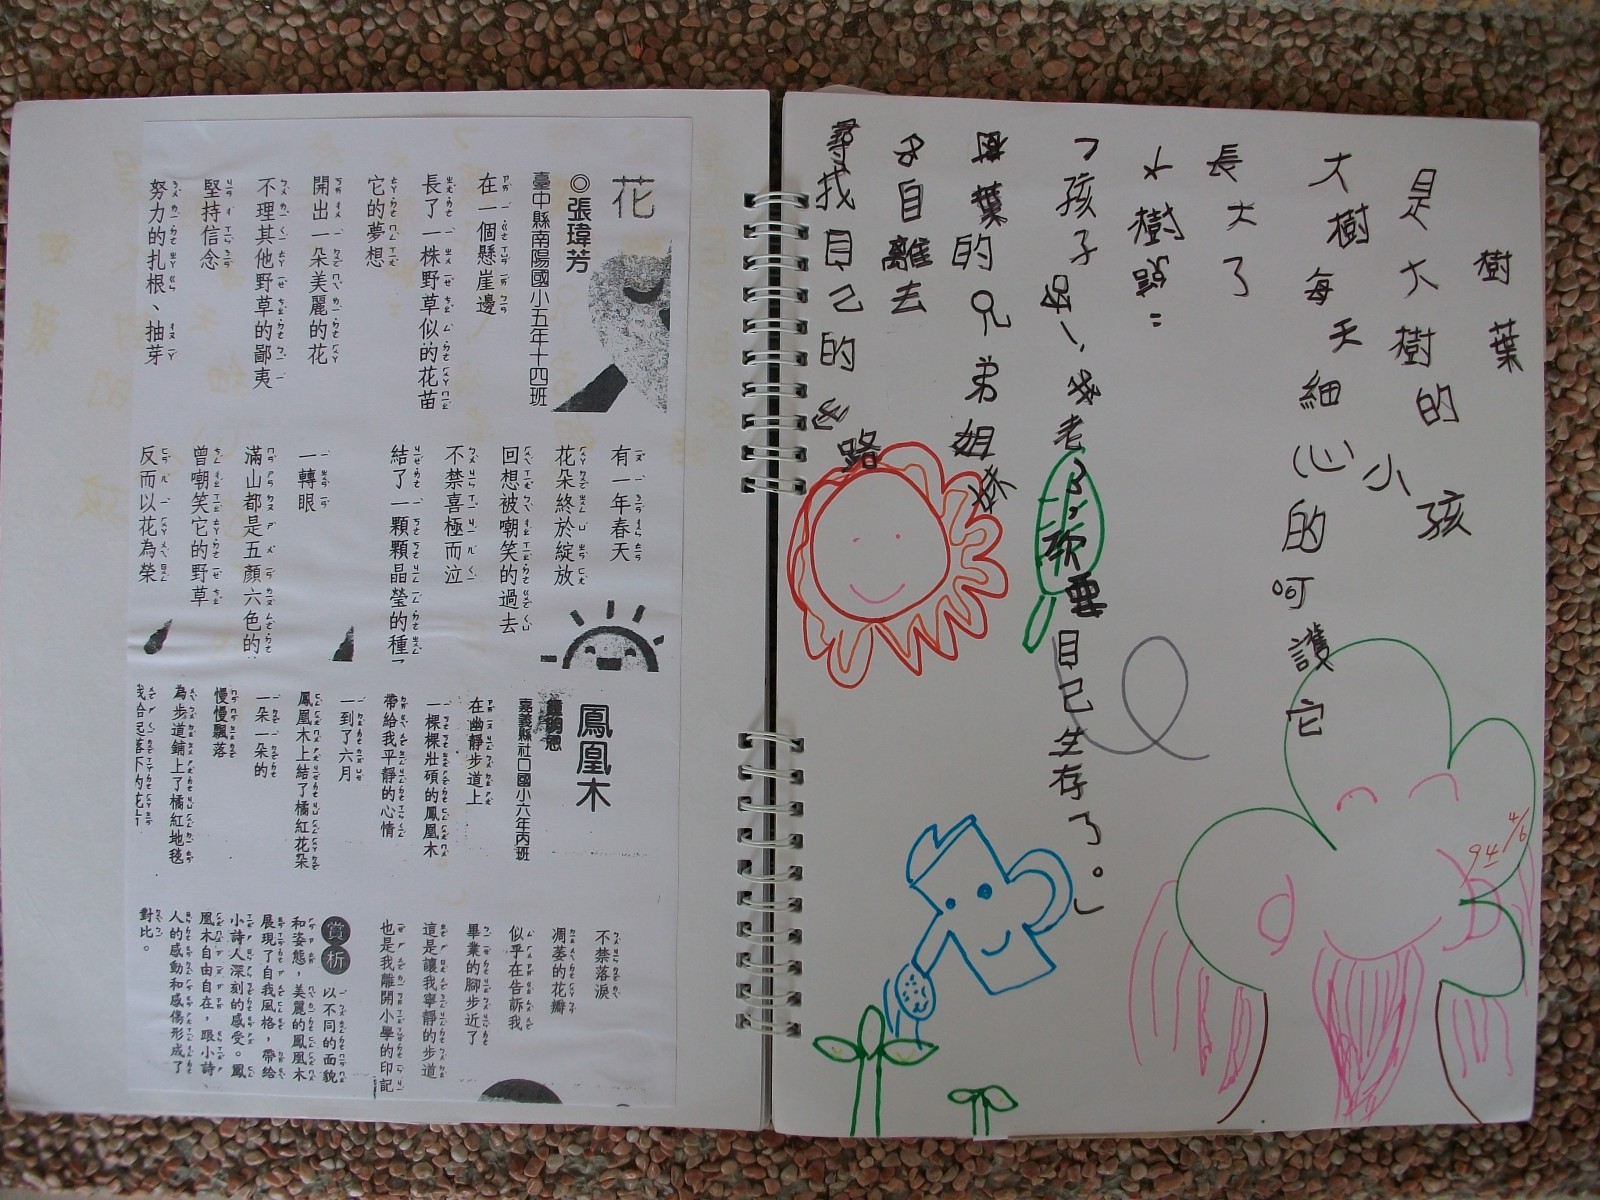 樹葉
是大樹的小孩
大樹每天細心的呵護它
長大了
大樹說：
「孩子 ！我老了，你要自己生存了。」
葉的兄弟姐妹
各自離去
尋找自己的 路
94 4/6
花
◎張瑋芳
臺中縣南陽國小五年十四班
在一個懸崖邊
長了一株野草似的花苗
它的夢想
開出一朵美麗的花
不理其他野草的鄙夷
堅持信念
努力的扎根、抽芽
有一年春天
花朵終於綻放
回想被嘲笑的過去
不禁喜極而泣
結了一顆顆晶瑩的種子
一轉眼
滿山都是五顏六色的
曾嘲笑它的野草
反而以花為榮
鳳凰木
嘉義縣社口國小六年丙班
在幽靜步道上
一棵棵壯碩的鳳凰木
帶給我平靜的心情
一到了六月
鳳凰木上結了橘紅花朵
一朵一朵的
慢慢飄落
為步道鋪上了橘紅地毯
我拾起落下的花瓣
不禁落淚
凋萎的花瓣
似乎在告訴我
畢業的腳步近了
這是讓我寧靜的步道
也是我離開小學的印記
賞析
以不同的面貌
和姿態，美麗的鳳凰木
展現了自我風格，帶給
小詩人深刻的感受。鳳
凰木自由自在，跟小詩
人的感動和感傷形成了
對比。